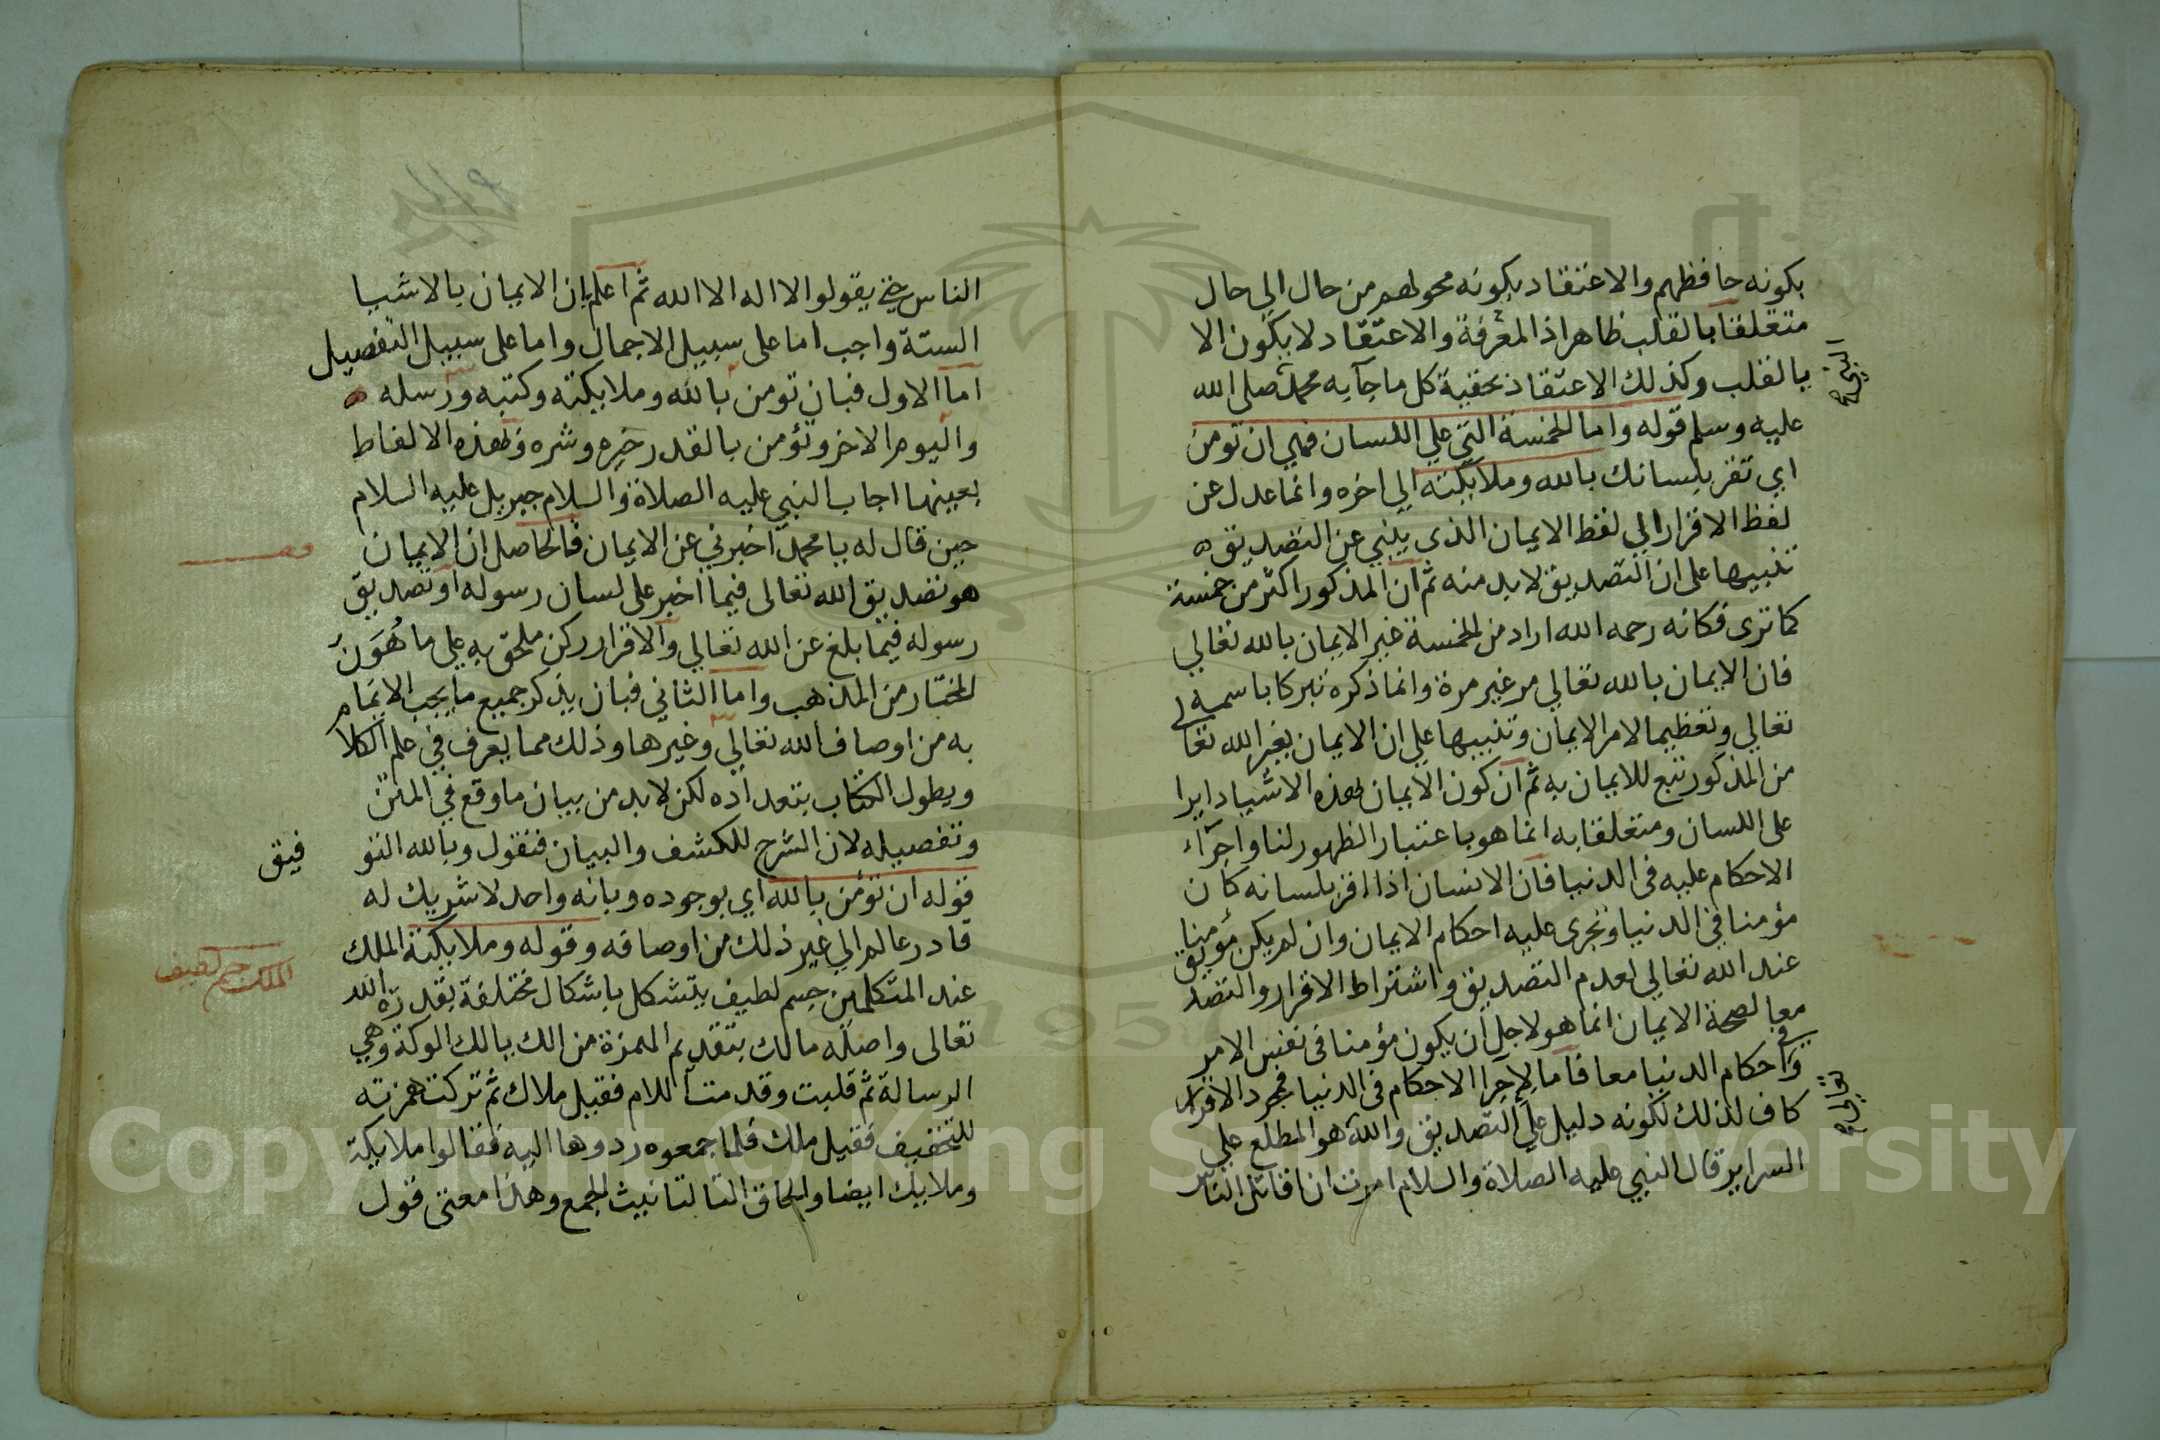 بكونه حافظهم والاعتقاد بكونه محولهم من حال الي حال
متعلقا بالقلب ظاهرا اذ المعرفة والاعتقاد لا يكون الا
بالقلب وكذلك الاعتقاد بحقية كل ما جآ به محمد صلى الله
عليه وسلم قوله واما الخمسة التي علي اللسان فهي ان تومن
اي تقر بلسانك بالله وملايكته الي اخره وانما عدل عن
لفظ الاقرار الي لفظ الايمان الذي ينبي عن التصديق
تنبيها على ان التصديق لا بد منه ثم ان المذكور اكثر من خمسة
كما ترى فكانه رحمه الله اراد من الخمسة غير الايمان بالله تعالي
فان الايمان بالله تعالي مر غير مرة وانما ذكره تبركا باسمه
تعالي وتعظيما لامر الايمان وتنبيها علي ان الايمان بغير الله تعا
من المذكور تبع للايمان به ثم ان كون الايمان بهذه الاشيا دايرا
على اللسان ومتعلقا به انما هو باعتبار الظهور لنا واجرآء
الاحكام عليه فى الدنيا فان الانسان اذا اقر بلسانه كان
مؤمنا في الدنيا وتجرى عليه احكام الايمان وان لم يكن مؤمنا
عند الله تعالي لعدم التصديق واشتراط الاقرار والتصديق
معا لصحة الايمان انما هو لاجل ان يكون مؤمنا فى نفس الامر
وفي احكام الدنيا معا فاما لاجرا الاحكام فى الدنيا فمجرد الاقرار
كاف لذلك لكونه دليل على التصديق والله هو المطلع علي
السراير قال النبي عليه الصلاة والسلام امرت ان اقاتل الناس
الناس حتي يقولوا لا اله الا الله ثم اعلم بان الايمان بالاشيا
الستة واجب اما على سبيل الاجمال واما على سبيل التفصيل
اما الاول فبان تومن بالله وملايكته وكتبه ورسله
واليوم الاخر وتؤمن بالقدر خيره وشره وبهذه الالفاظ
بعينها اجاب النبي عليه الصلاة والسلام جبريل عليه السلام
حين قال له يا محمد اخبرني عن الايمان فالحاصل ان الايمان
هو تصديق الله تعالى فيما اخبر على لسان رسوله او تصديق
رسوله فيما بلغ عن الله تعالي والاقرار ركن ملحق به علي ما هُوَ
المختار من المذهب واما الثاني فبان يذكر جميع ما يجب الايمام
به من اوصاف الله تعالي وغيرها وذلك مما يعرف في علم الكلا
ويطول الكتاب بتعداده لكن لا بد من بيان ما وقع في المتن
وتفصيله لان الشرح للكشف والبيان فنقول وبالله التو
فيق
قوله ان تؤمن بالله اي بوجوده وبانه واحد لا شريك له
قادر عالم الي غير ذلك من اوصافه وقوله وملايكته الملك
الملك جسم لطيف
عند المتكلمين جسم لطيف يتشكل باشكال مختلفة بقدرة الله
تعالى واصله مالك بتقديم الهمزة من الك يالك الوكة وهي
الرسالة ثم قلبت وقدمت اللام فقيل ملاك ثم تركت همزته
للتخفيف فقيل ملك فلما جمعوه ردوها اليه فقالوا ملايكة
وملايك ايضا والحاق التا لتانيث الجمع وهذا معنى قول
Copyright © King Saud University
1957